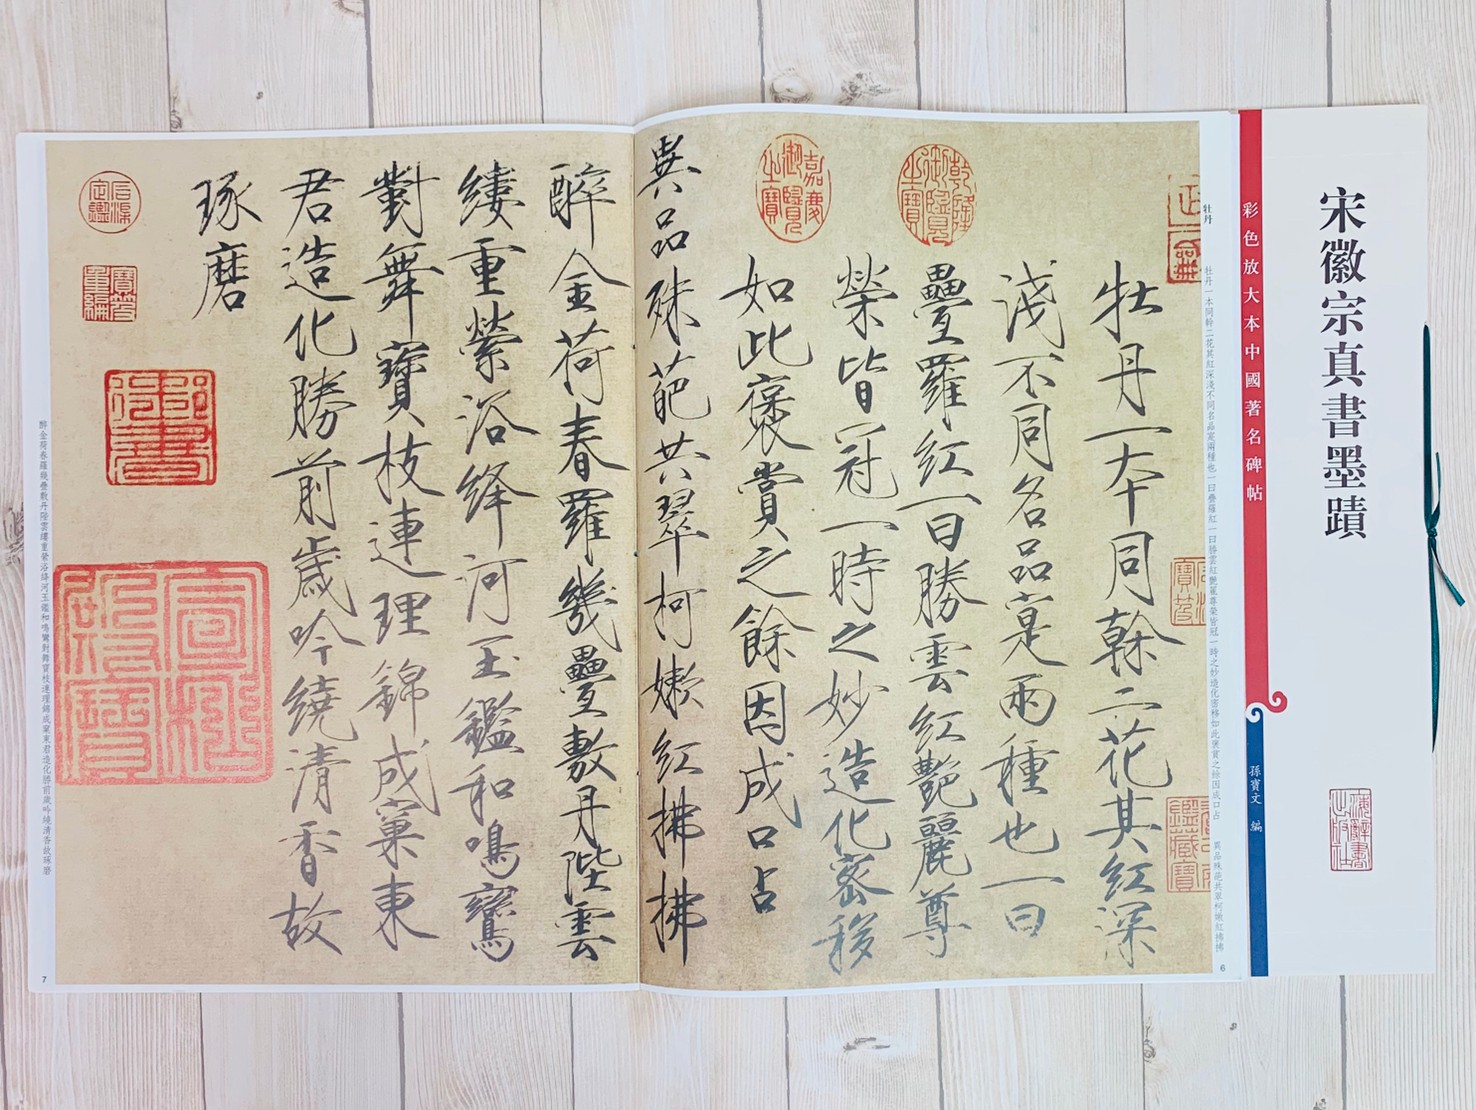 宋徽宗真書墨蹟
彩色放大本中國著名碑帖
孫寶文 編
牡丹
牡丹一本同幹二花其紅深淺不同名品寔兩種也一曰疊羅紅一曰勝雲紅艷麗尊榮皆冠一時之妙造化密移如此褒賞之餘因成口占 異品殊葩共翠柯嫩紅拂拂
6
牡丹一本同幹二花其紅深
淺不同名品寔兩種也一曰
疊羅紅一曰勝雲紅艷麗尊
榮皆冠一時之妙造化密移
如此褒賞之餘因成口占
異品殊葩共翠柯嫩紅拂拂
乾隆御覽之寶
嘉慶御覽之寶
醉金荷春羅幾疊敷丹陛雲
縷重縈浴絳河玉鑑和鳴鸞
對舞寶枝連理錦成窠東
君造化勝前歲吟繞清香故
琢磨
石渠定鑑
寶笈重編
醉金荷春羅幾疊敷丹陛雲縷重縈浴絳河玉鑑和鳴鸞對舞寶枝連理錦成窠東君造化勝前歲吟繞清香故琢磨
7